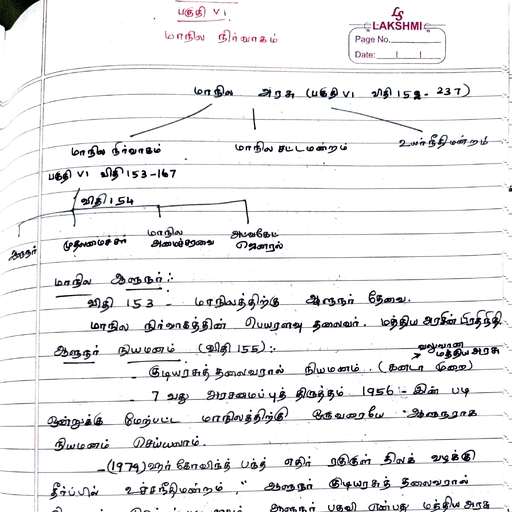 பகுதி VI
மாநில நிர்வாகம்
LS
LAKSHMI
Page No.
Date:
மாநில அரசு (பகுதி VI விதி 152 - 237)
மாநில நிர்வாகம் மாநில சட்டமன்றம் உயர்நீதிமன்றம்
பகுதி VI விதி 153-167
விதி 154
ஆளுநர் முதலமைச்சர் மாநில அமைச்சரவை அட்வகேட் ஜெனரல்
மாநில ஆளுநர்:
விதி 153 - மாநிலத்திற்கு ஆளுநர் தேவை.
மாநில நிர்வாகத்தின் பெயரளவு தலைவர். மத்திய அரசின் பிரதிநிதி.
ஆளுநர் நியமனம் (விதி 155):- வலுவான மத்திய அரசு
- குடியரசுத் தலைவரால் நியமனம். (கனடா முறை)
- 7 வது அரசமைப்புத் திருத்தம் 1956 - இன் படி
ஒன்றுக்கு மேற்பட்ட மாநிலத்திற்கு ஒருவரையே ஆளுநராக
நியமனம் செய்யலாம்.
- (1979) ஹர் கோவிந்த் பந்த் எதிர் ரகுகுள் திலக் வழக்கு
தீர்ப்பில் உச்சநீதிமன்றம், " ஆளுநர் குடியரசுத் தலைவரால்
ஆளுநர் பதவி என்பது மத்திய அரசு